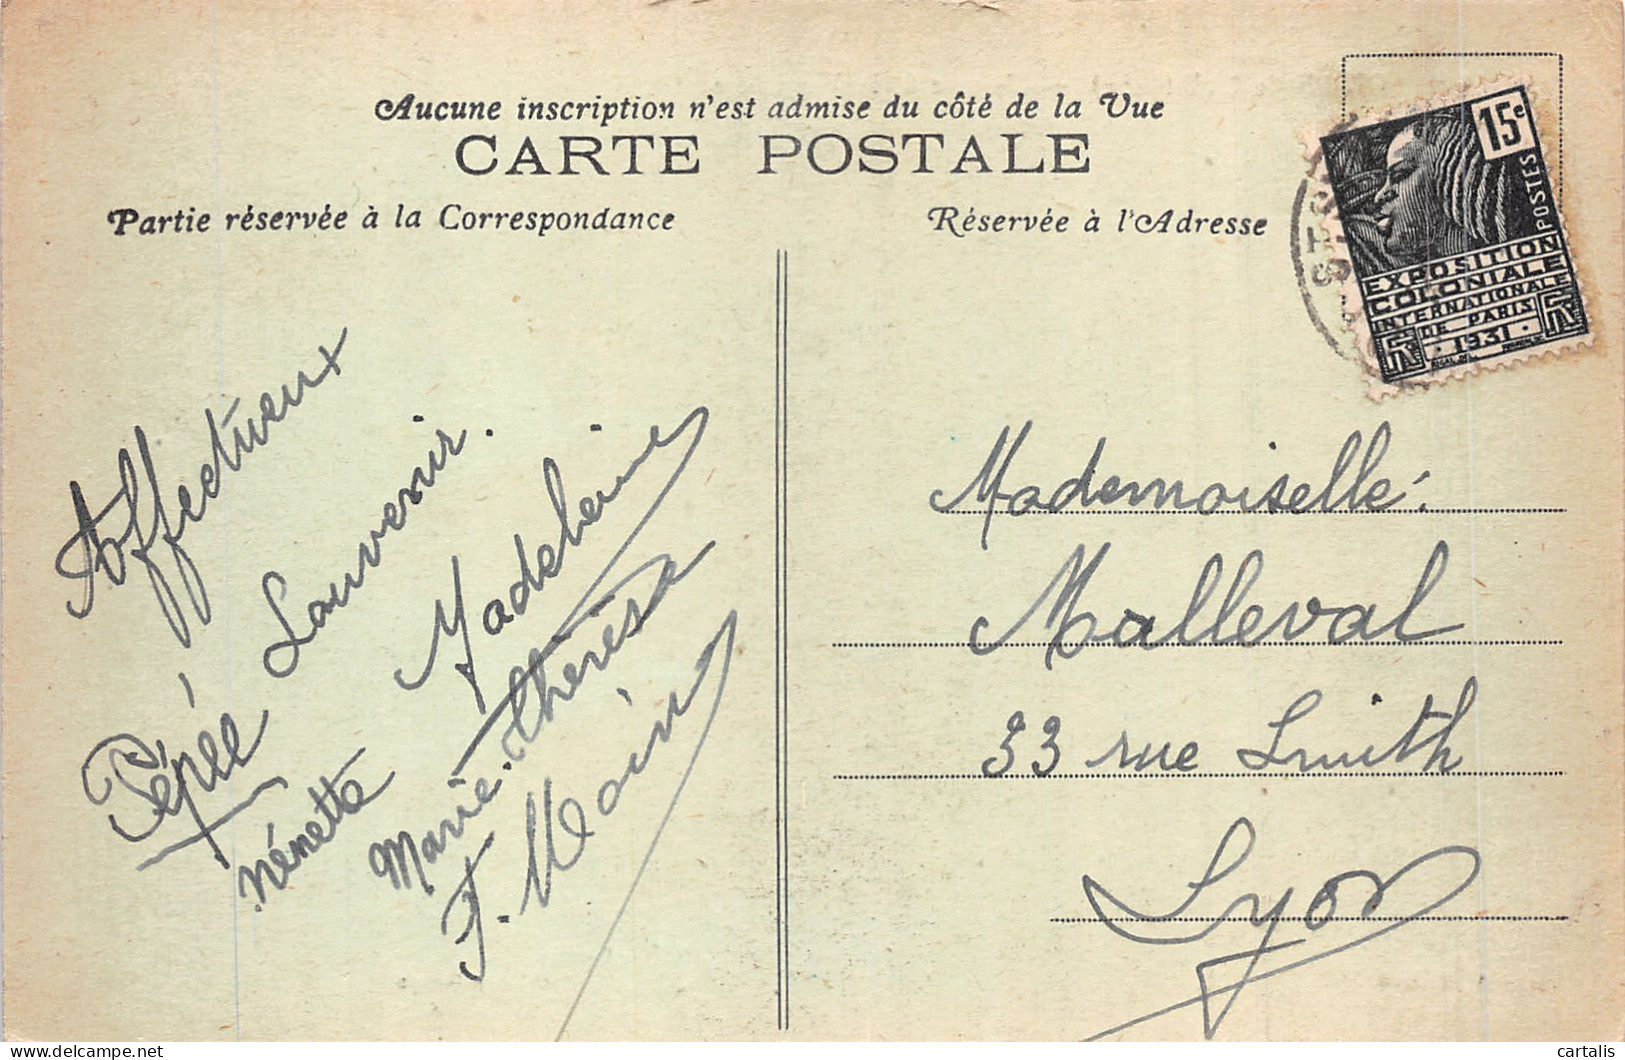 Aucune inscription n'est admise du côté de la Vue
CARTE POSTALE
Partie réservée à la Correspondance
Réservée à l'Adresse
15c
POSTES
EXPOSITION
COLONIALE
INTERNATIONALE
DE PARIS
1931
Affectueux
Souvenir.
Madeleine
Pépée
Nénette
Marie-Thérèse
F. Moin
Mademoiselle:
Malleval
33 rue Smith
Lyon
cartalis